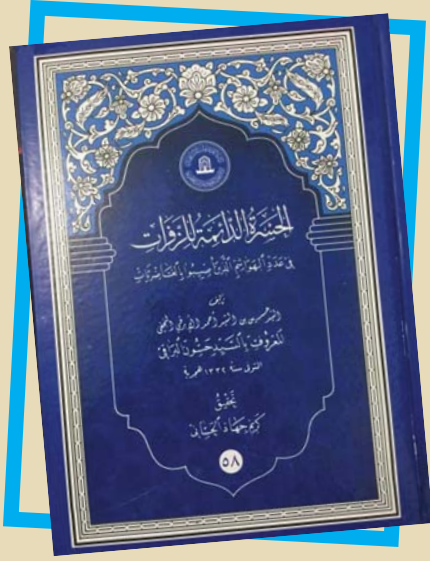 الحسرة الدائمة للزفرات
في عدد الهواشم الذين أصيبوا بالغاضريات
تأليف
السيد حسين بن السيد أحمد النجفي
المعروف بالسيد حسون البراقي
المتوفى سنة ١٣٣٤ هجرية
تحقيق
كريم جهاد الحساني
٥٨